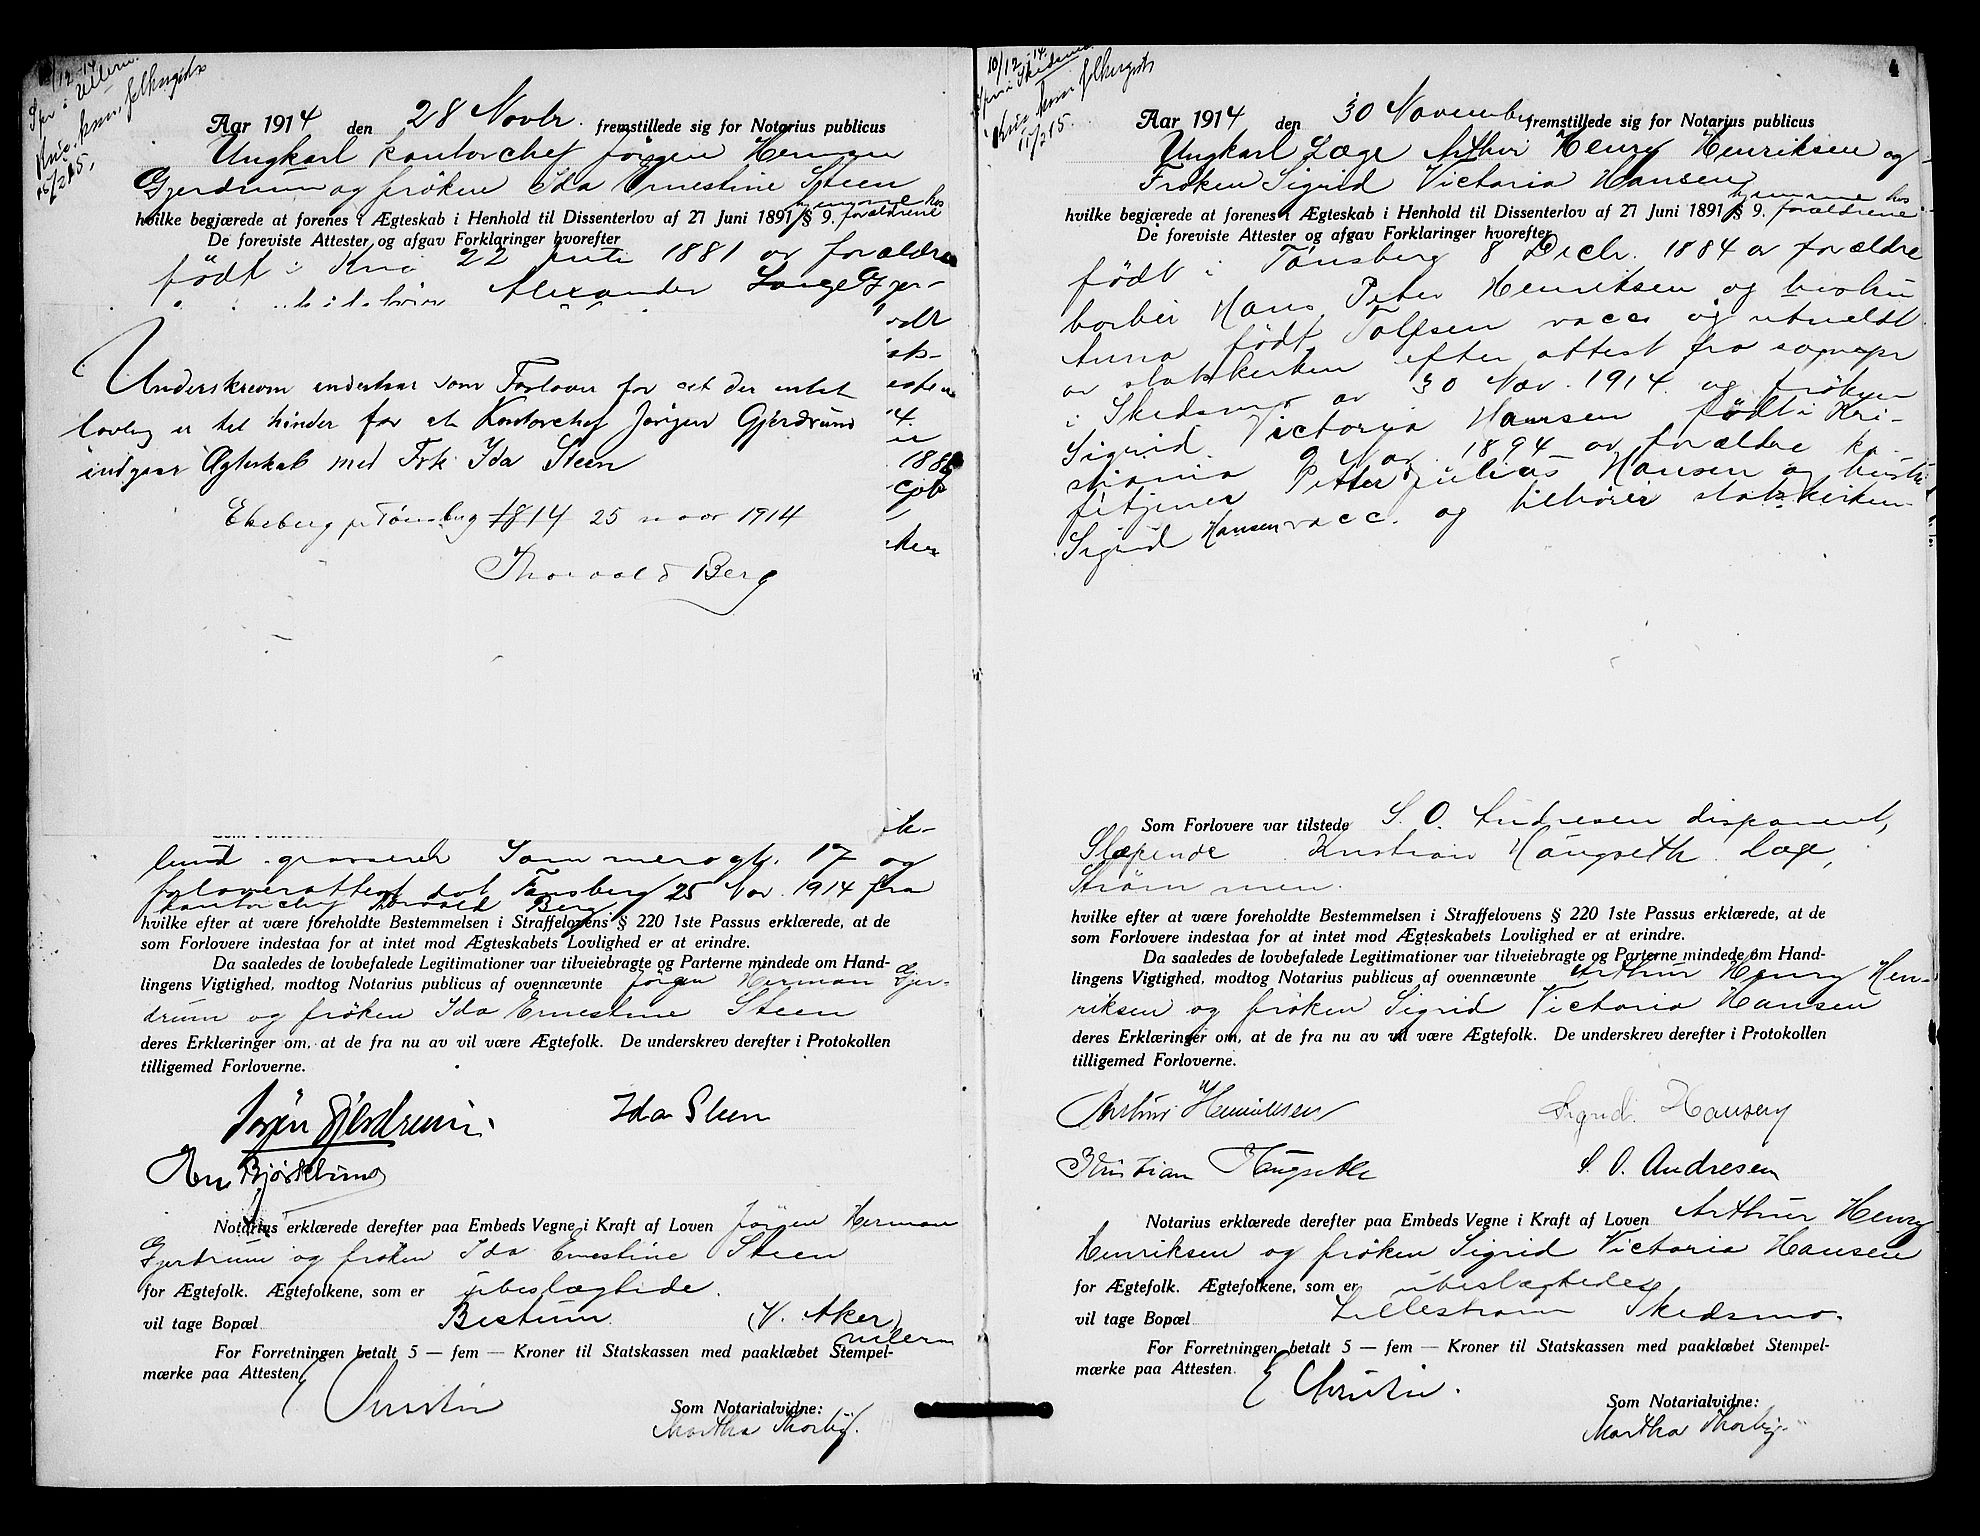 10/12-14.
Spr i Ullern.
Kris. kom. folkregister
15/2 15.
Aar 1914 den 28 Novbr. fremstillede sig for Notarius publicus
Ungkarl kontorchef Jörgen Herman
Gjerdrum og fröken Ida Ernestine Steen
hjemme hos
hvilke begjærede at forenes i Ægteskab i Henhold til Dissenterlov af 27 Juni 1891 § 9. forældrene
De foreviste Attester og afgav Forklaringer hvorefter
födt i Kra 22 juli 1881 av forældre
Alexander Lange Gjer-
Underskreven indestaar som Forlover for at der intet
lovlig er til hinder for at Kontorchef Jörgen Gjerdrum
indgaar Ægteskab med Frk. Ida Steen
Ekeberg pr Tönsberg 1814 25 nov 1914
Thorvald Berg
lund grosserer Sommerogt. 17 og
forloverattest dat Tönsberg 25 Nov. 1914 fra
kontorchef Thorvald Berg
hvilke efter at være foreholdte Bestemmelsen i Straffelovens § 220 1ste Passus erklærede, at de
som Forlovere indestaa for at intet mod Ægteskabets Lovlighed er at erindre.
Da saaledes de lovbefalede Legitimationer var tilveiebragte og Parterne mindede om Hand-
lingens Vigtighed, modtog Notarius publicus af ovennævnte Jörgen Herman Gjer-
drum og fröken Ida Ernestine Steen
deres Erklæringer om, at de fra nu av vil være Ægtefolk. De underskrev derefter i Protokollen
tilligemed Forloverne.
Jörgen Gjerdrum. Ida Steen
Björklund
Notarius erklærede derefter paa Embeds Vegne i Kraft af Loven Jörgen Herman
Gjerdrum og fröken Ida Ernestine Steen
for Ægtefolk. Ægtefolkene, som er ubeslægtede.
vil tage Bopæl Bestum (V. Aker)
Ullern
For Forretningen betalt 5 — fem — Kroner til Statskassen med paaklæbet Stempel-
mærke paa Attesten.
E Christin
Som Notarialvidne:
Martha Thorbj.
10/12-14.
Spr i Skedsmo
Kris. kom folkregister
11/2 15.
4
Aar 1914 den 30 November fremstillede sig for Notarius publicus
Ungkarl Læge Arthur Henry Henriksen og
Fröken Sigrid Victoria Hansen
hjemme hos
hvilke begjærede at forenes i Ægteskab i Henhold til Dissenterlov af 27 Juni 1891 § 9. forældrene
De foreviste Attester og afgav Forklaringer hvorefter
födt i Tönsberg 8 Decbr. 1884 av forældre
barber Hans Peter Henriksen og hustru
Anna födt Tolfsen vacc og utmeldt
av statskirken efter attest fra sognepr
i Skedsmo av 30 Nov. 1914 og fröken
Sigrid Victoria Hansen födt i Kri-
stiania 9 Nov. 1894 av forældre ka-
fétjener Petter Julius Hansen og hustru
Sigrid Hansen vacc. og tilhörer statskirken
Som Forlovere var tilstede S. O. Andresen disponent,
Slæpende Kristian Haugseth Læge,
Strömmen.
hvilke efter at være foreholdte Bestemmelsen i Straffelovens § 220 1ste Passus erklærede, at de
som Forlovere indestaa for at intet mod Ægteskabets Lovlighed er at erindre.
Da saaledes de lovbefalede Legitimationer var tilveiebragte og Parterne mindede om Hand-
lingens Vigtighed, modtog Notarius publicus af ovennævnte Arthur Henry Hen-
riksen og fröken Sigrid Victoria Hansen
deres Erklæringer om, at de fra nu av vil være Ægtefolk. De underskrev derefter i Protokollen
tilligemed Forloverne.
Arthur H Henriksen Sigrid Hansen
Kristian Haugseth S. O. Andresen
Notarius erklærede derefter paa Embeds Vegne i Kraft af Loven Arthur Henry
Henriksen og fröken Sigrid Victoria Hansen
for Ægtefolk. Ægtefolkene, som er ubeslægtede
vil tage Bopæl Lilleström Skedsmo.
For Forretningen betalt 5 — fem — Kroner til Statskassen med paaklæbet Stempel-
mærke paa Attesten.
E Christin.
Som Notarialvidne:
Martha Thorbj.